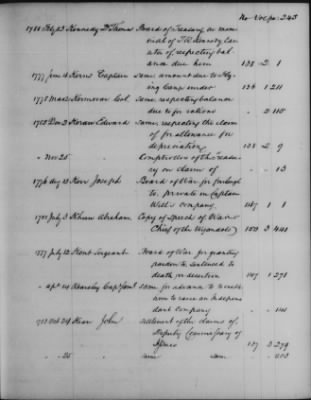 No. Vol. pa: 243
1781 Feby 23 Kennedy Dr Thomas Board of Treasury on memorial of Dr Kennedy respecting balance due him 138 2 1
1777 June Kerns Captain same amount due to Flying Camp under 136 1 211
1778 Mar 2 Kermovan Col. same respecting balance due to for rations " 2 115
1782 Dec 2 Keran Edward same respecting the claim of for allowance for depreciation 138 2 9
" Nov 25 " Comptroller of the Treasury on claim of " " 13
1776 Aug 13 Kerr Joseph Board of War for furlough to, private in Captain Company 147 1 1
July 3 Abraham Copy of Speech of Chief of the Wyandots 153 3
1777 July 12 Kent Sergeant Board of War for granting pardon to, sentenced to death for desertion 147 1 273
" Capt Jont same for advance to to raise an Independant Company " "
Oct 24 Kear John settlement of the claims of, Deputy Commissary of Issues 137 3 279
" 25 " same same "